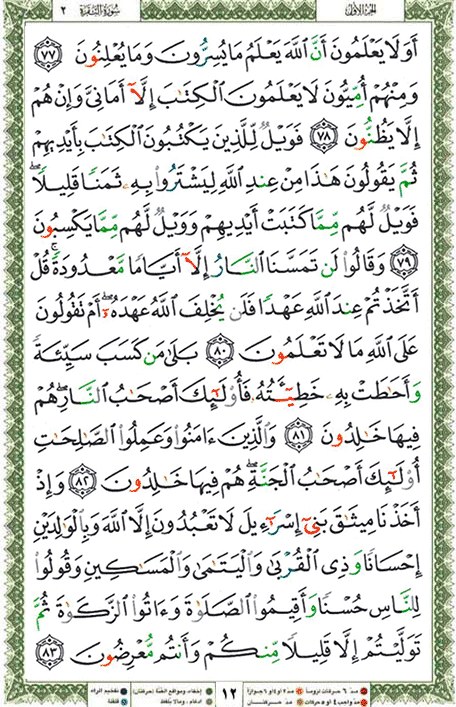 الجزء الأول سورة البقرة ٢
أَوَلَا يَعْلَمُونَ أَنَّ ٱللَّهَ يَعْلَمُ مَا يُسِرُّونَ وَمَا يُعْلِنُونَ ٧٧
وَمِنْهُمْ أُمِّيُّونَ لَا يَعْلَمُونَ ٱلْكِتَٰبَ إِلَّآ أَمَانِىَّ وَإِنْ هُمْ
إِلَّا يَظُنُّونَ ٧٨ فَوَيْلٌ لِّلَّذِينَ يَكْتُبُونَ ٱلْكِتَٰبَ بِأَيْدِيهِمْ
ثُمَّ يَقُولُونَ هَٰذَا مِنْ عِندِ ٱللَّهِ لِيَشْتَرُوا۟ بِهِۦ ثَمَنًا قَلِيلًا ۖ
فَوَيْلٌ لَّهُم مِّمَّا كَتَبَتْ أَيْدِيهِمْ وَوَيْلٌ لَّهُم مِّمَّا يَكْسِبُونَ
٧٩ وَقَالُوا۟ لَن تَمَسَّنَا ٱلنَّارُ إِلَّآ أَيَّامًا مَّعْدُودَةً ۚ قُلْ
أَتَّخَذْتُمْ عِندَ ٱللَّهِ عَهْدًا فَلَن يُخْلِفَ ٱللَّهُ عَهْدَهُۥٓ ۖ أَمْ تَقُولُونَ
عَلَى ٱللَّهِ مَا لَا تَعْلَمُونَ ٨٠ بَلَىٰ مَن كَسَبَ سَيِّئَةً
وَأَحَٰطَتْ بِهِۦ خَطِيٓـَٔتُهُۥ فَأُو۟لَٰٓئِكَ أَصْحَٰبُ ٱلنَّارِ ۖ هُمْ
فِيهَا خَٰلِدُونَ ٨١ وَٱلَّذِينَ ءَامَنُوا۟ وَعَمِلُوا۟ ٱلصَّٰلِحَٰتِ
أُو۟لَٰٓئِكَ أَصْحَٰبُ ٱلْجَنَّةِ ۖ هُمْ فِيهَا خَٰلِدُونَ ٨٢ وَإِذْ
أَخَذْنَا مِيثَٰقَ بَنِىٓ إِسْرَٰٓءِيلَ لَا تَعْبُدُونَ إِلَّا ٱللَّهَ وَبِٱلْوَٰلِدَيْنِ
إِحْسَانًا وَذِى ٱلْقُرْبَىٰ وَٱلْيَتَٰمَىٰ وَٱلْمَسَٰكِينِ وَقُولُوا۟
لِلنَّاسِ حُسْنًا وَأَقِيمُوا۟ ٱلصَّلَوٰةَ وَءَاتُوا۟ ٱلزَّكَوٰةَ ثُمَّ
تَوَلَّيْتُمْ إِلَّا قَلِيلًا مِّنكُمْ وَأَنتُم مُّعْرِضُونَ ٨٣
مدّ ٦ حركات لزوماً مدّ ٢ أو ٤ أو ٦ جوازاً ١٢ إخفاء، ومواقع الغُنّة (حركتان) تفخيم الراء
مدّ واجب ٤ أو ٥ حركات مدّ حركتان إدغام، وما لا يُلفظ قلقلة